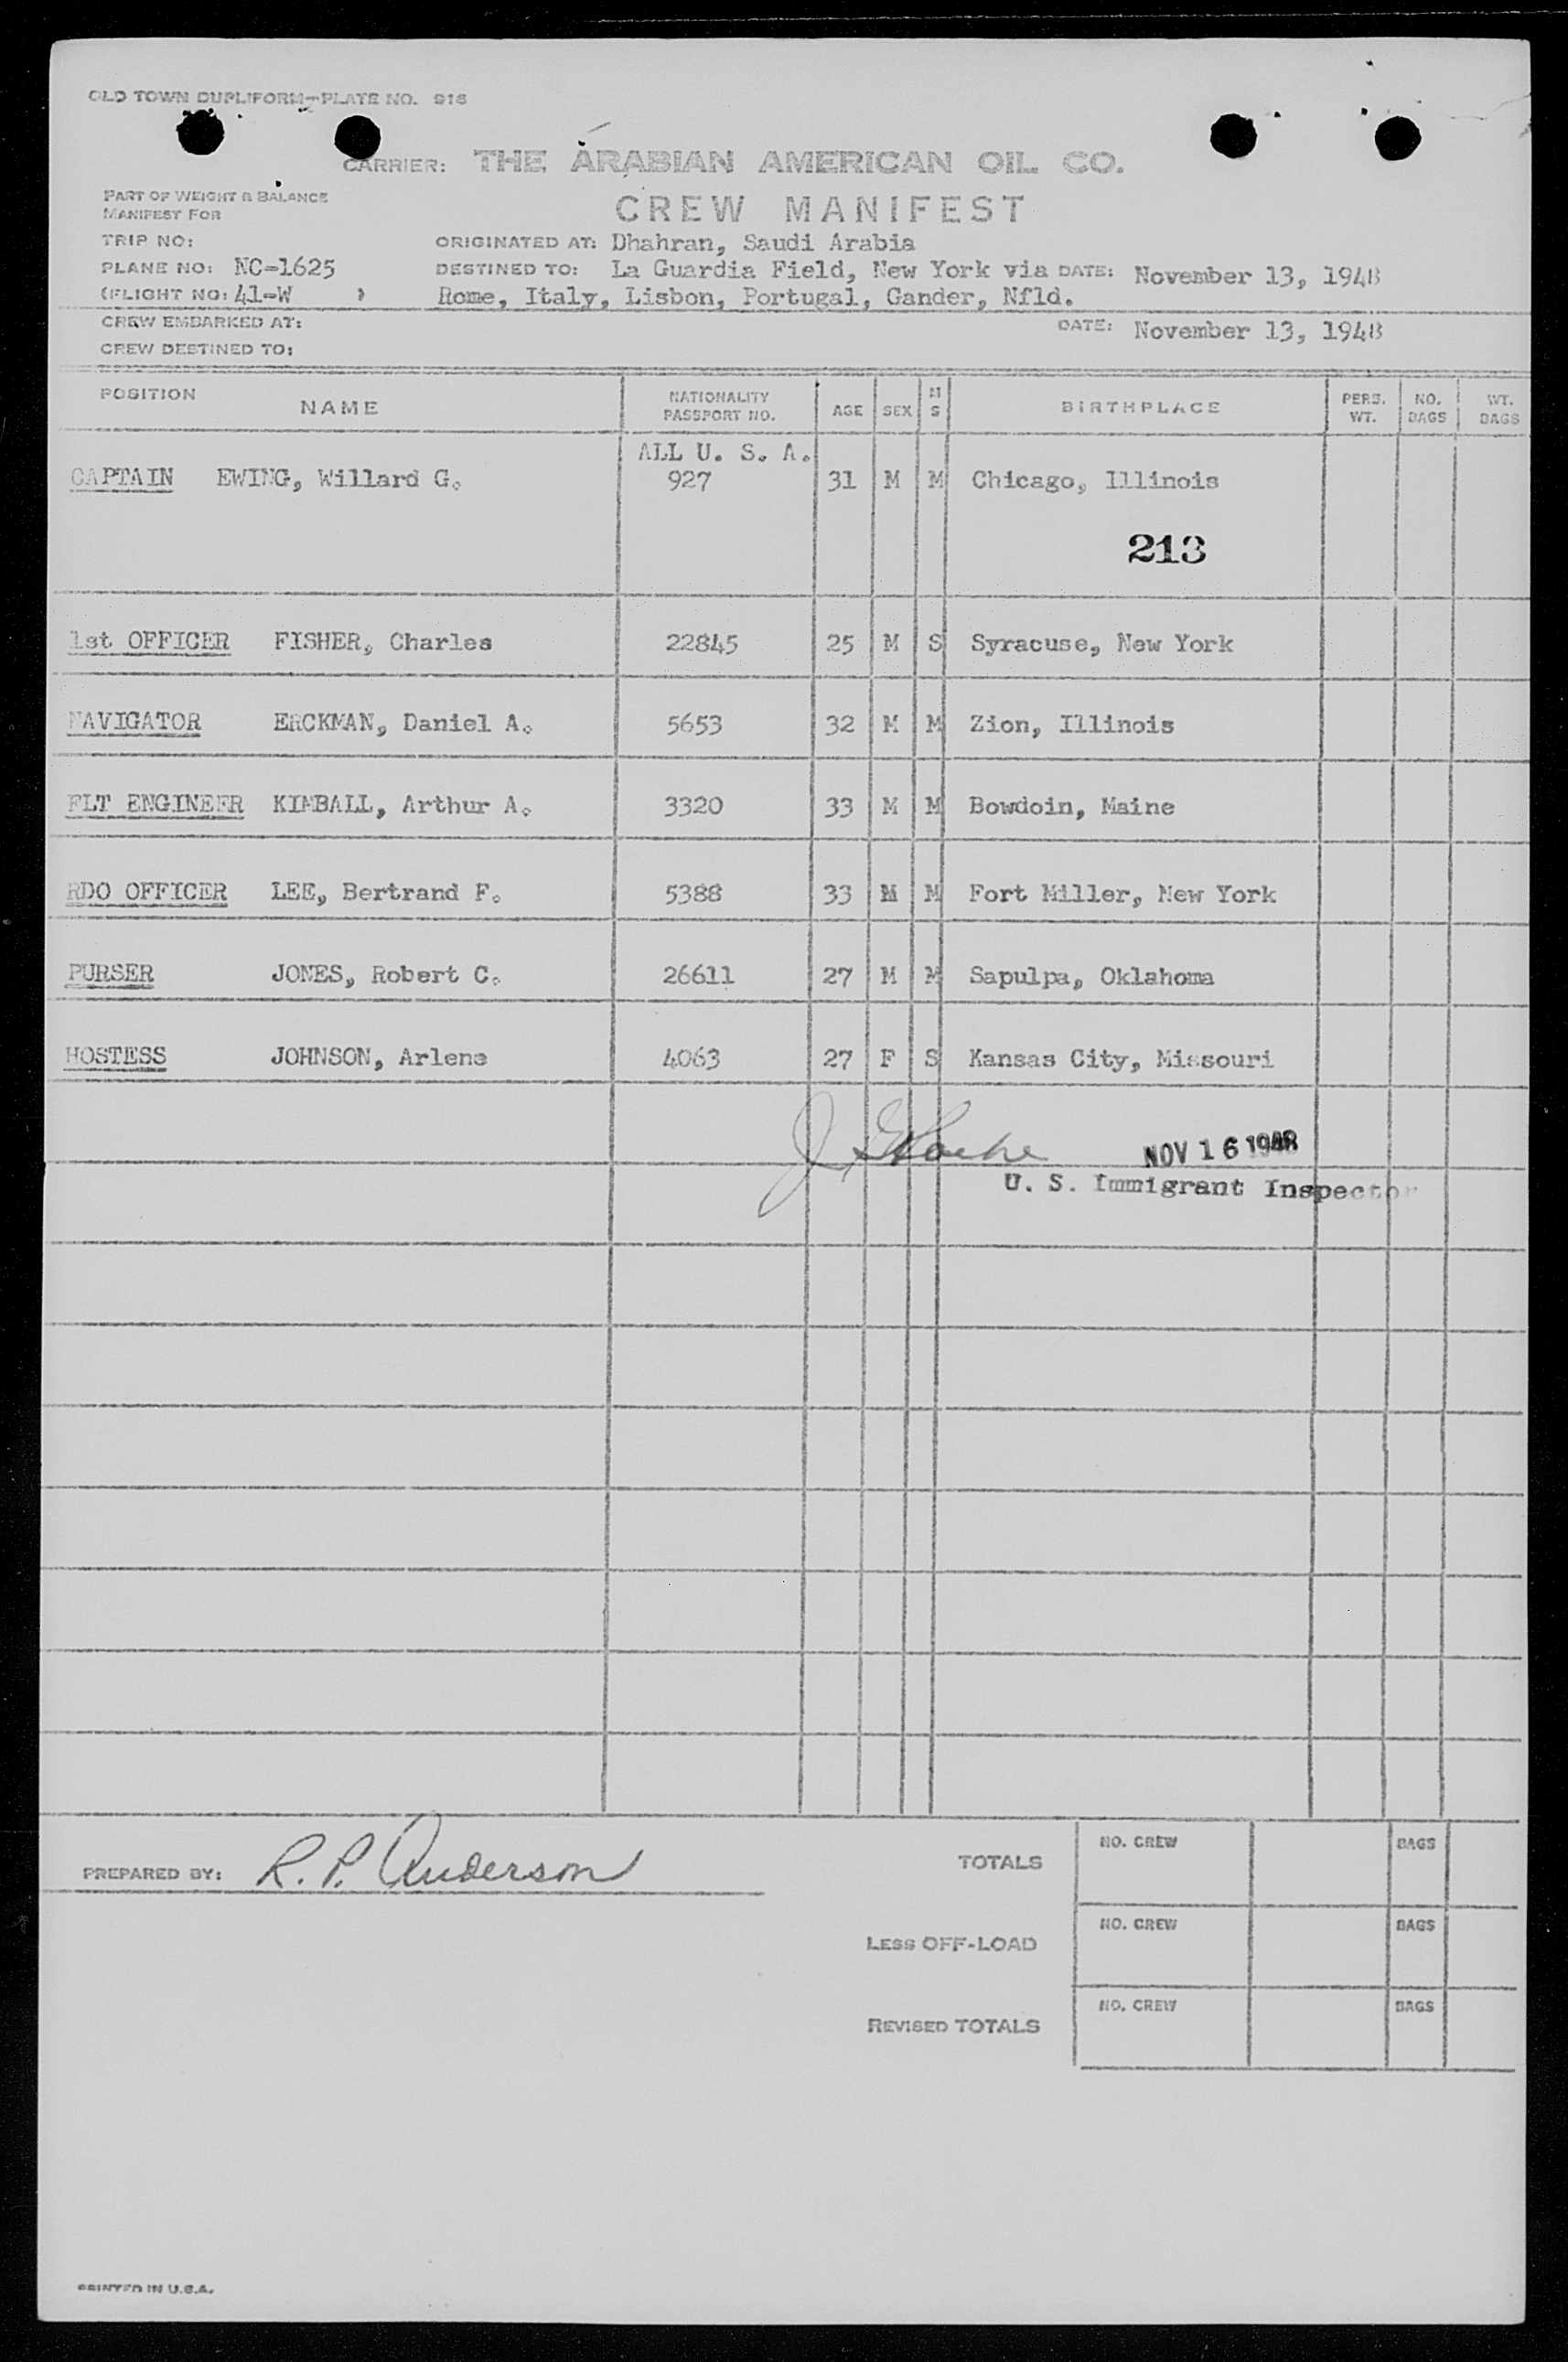 OLD TOWN DUPLIFORM—PLATE NO. 916
CARRIER: THE ARABIAN AMERICAN OIL CO.
PART OF WEIGHT & BALANCE
MANIFEST FOR
CREW MANIFEST
TRIP NO:
ORIGINATED AT: Dhahran, Saudi Arabia
PLANE NO: NC-1625
DESTINED TO: La Guardia Field, New York via DATE: November 13, 1948
(FLIGHT NO: 41-W )
Rome, Italy, Lisbon, Portugal, Gander, Nfld.
CREW EMBARKED AT:
DATE: November 13, 1948
CREW DESTINED TO:
POSITION NAME NATIONALITY PASSPORT NO. AGE SEX M S BIRTHPLACE PERS. WT. NO. BAGS WT. BAGS
ALL U. S. A.
CAPTAIN EWING, Willard G. 927 31 M M Chicago, Illinois
213
1st OFFICER FISHER, Charles 22845 25 M S Syracuse, New York
NAVIGATOR ERCKMAN, Daniel A. 5653 32 M M Zion, Illinois
FLT ENGINEER KIMBALL, Arthur A. 3320 33 M M Bowdoin, Maine
RDO OFFICER LEE, Bertrand F. 5388 33 M M Fort Miller, New York
PURSER JONES, Robert C. 26611 27 M M Sapulpa, Oklahoma
HOSTESS JOHNSON, Arlene 4063 27 F S Kansas City, Missouri
NOV 16 1948
U. S. Immigrant Inspector
PREPARED BY: R. P. Anderson
TOTALS NO. CREW BAGS
LESS OFF-LOAD NO. CREW BAGS
REVISED TOTALS NO. CREW BAGS
PRINTED IN U.S.A.